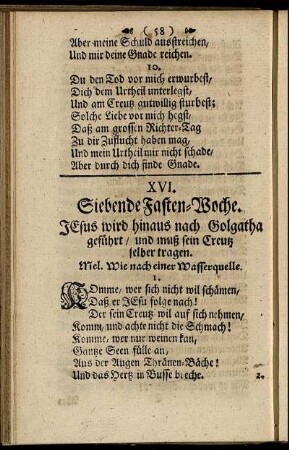 ( 58 )
Aber meine Schuld ausstreichen,
Und mir deine Gnade reichen.
10.
Du den Tod vor mich erwurbest,
Dich dem Urtheil unterlegst,
Und am Creutz gutwillig sturbest;
Solche Liebe vor mich hegst,
Daß am grossen Richter-Tag
Zu dir Zuflucht haben mag,
Und mein Urtheil mir nicht schade,
Aber durch dich finde Gnade.
XVI.
Siebende Fasten-Woche.
JEsus wird hinaus nach Golgatha
geführt / und muß sein Creutz
selber tragen.
Mel. Wie nach einer Wasserquelle.
1.
KOmme, wer sich nicht wil schämen,
Daß er JEsu folge nach!
Der sein Creutz wil auf sich nehmen,
Komm, und achte nicht die Schmach!
Komme, wer nur weinen kan,
Gantze Seen fülle an,
Aus der Augen Thränen-Bäche!
Und das Hertz in Busse breche.
2.